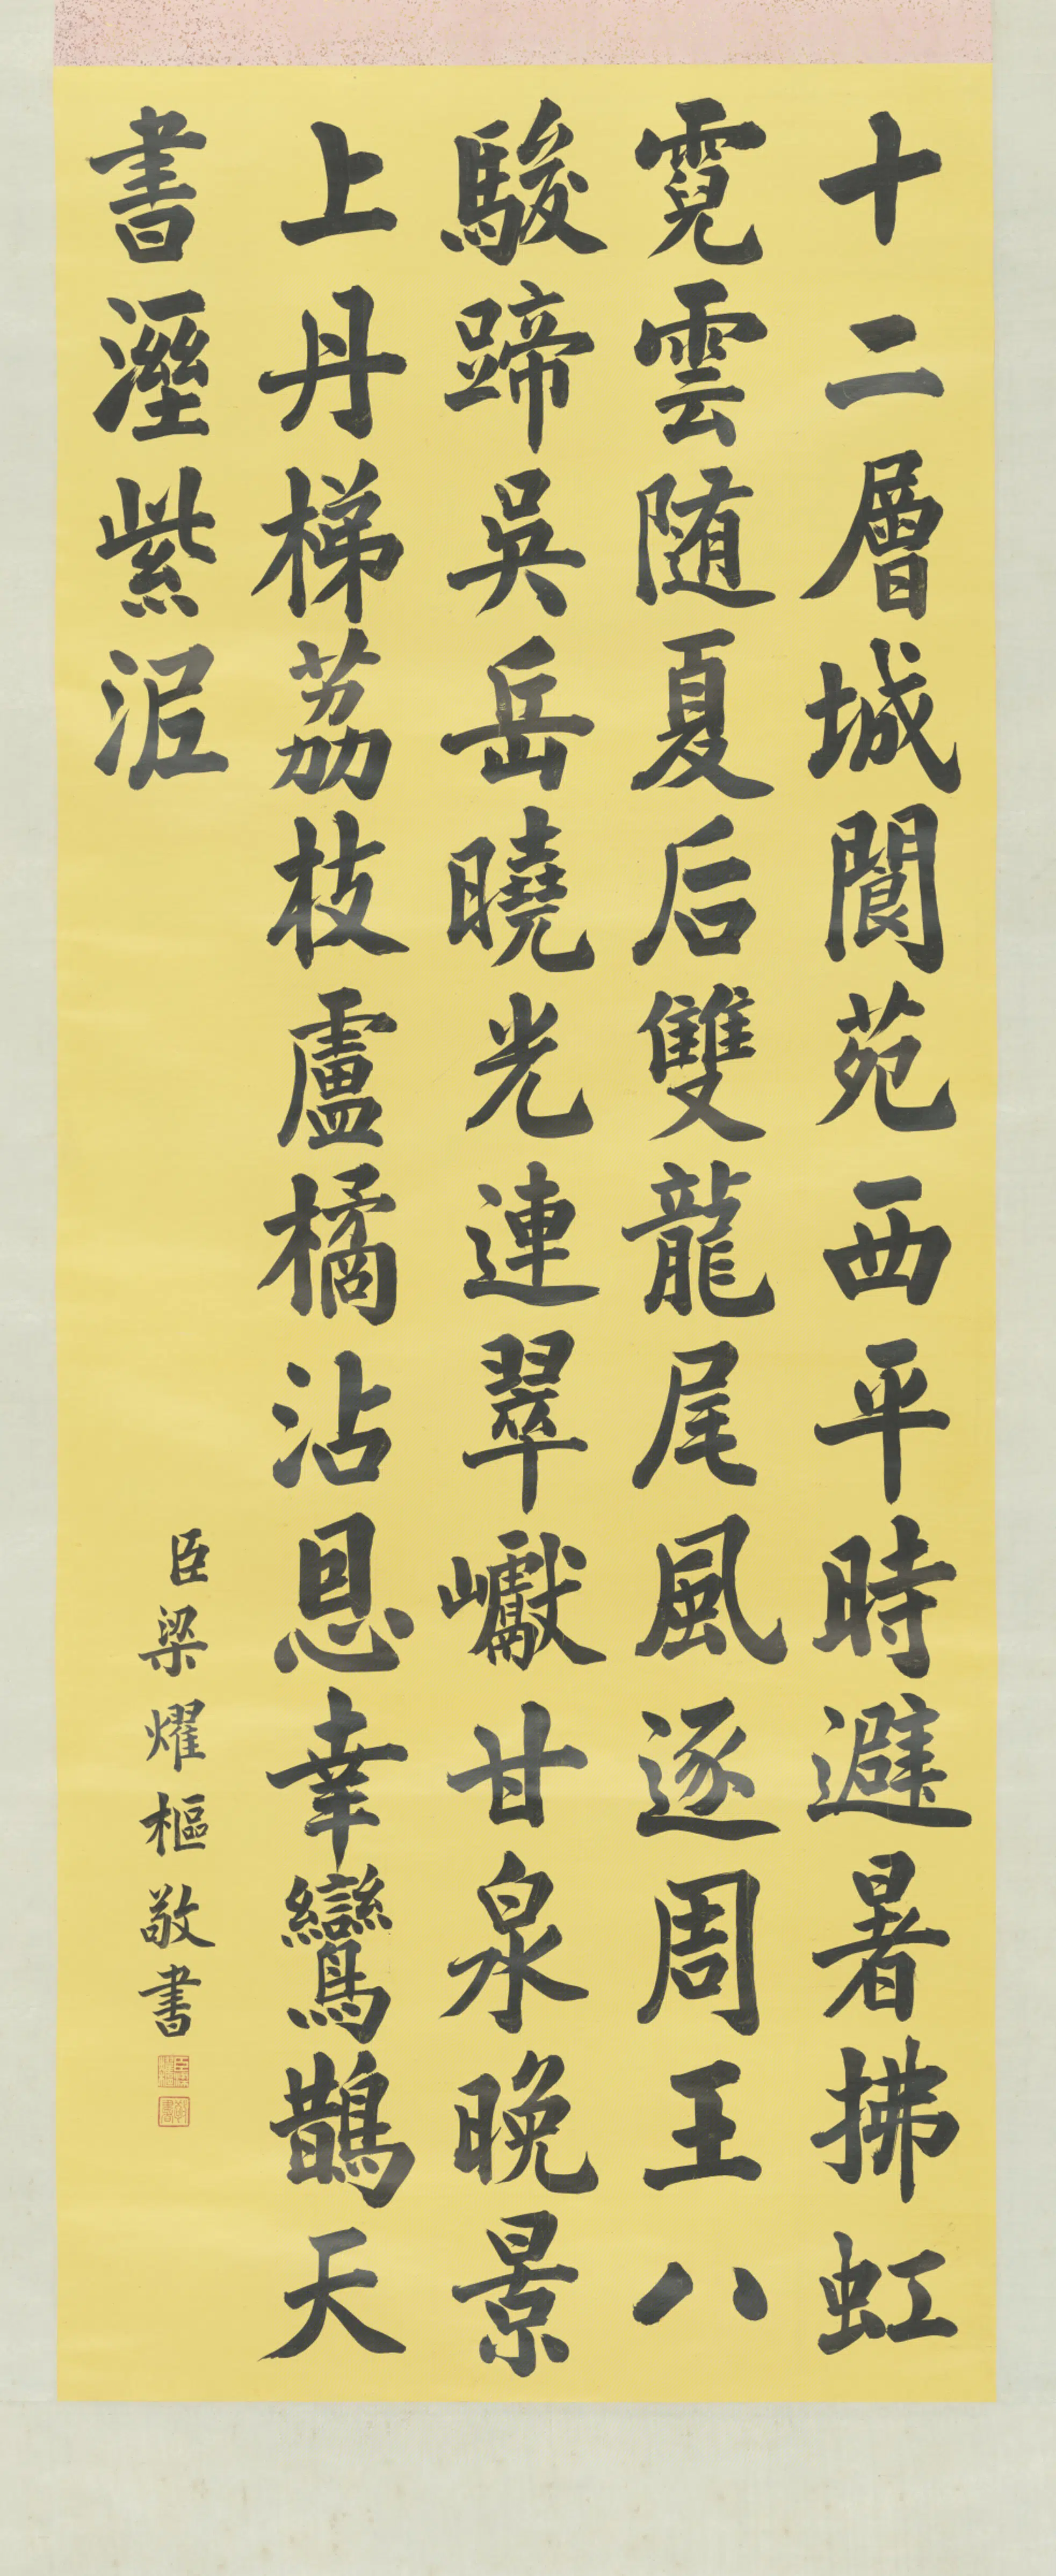 十二層城閬苑西平時避暑拂虹
霓雲随夏后雙龍尾風逐周王八
駿蹄吳岳曉光連翠巘甘泉晚景
上丹梯荔枝盧橘沾恩幸鸞鵲天
書溼紫泥
臣梁燿樞敬書